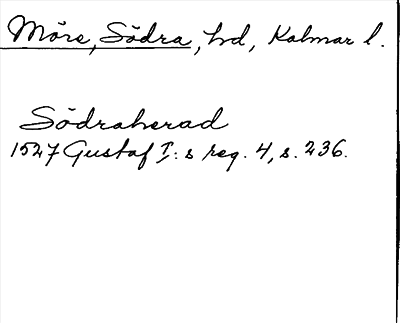 Möre, Södra, hd, Kalmar l.
Södraherad
1527 Gustaf I:s reg. 4, s. 236.